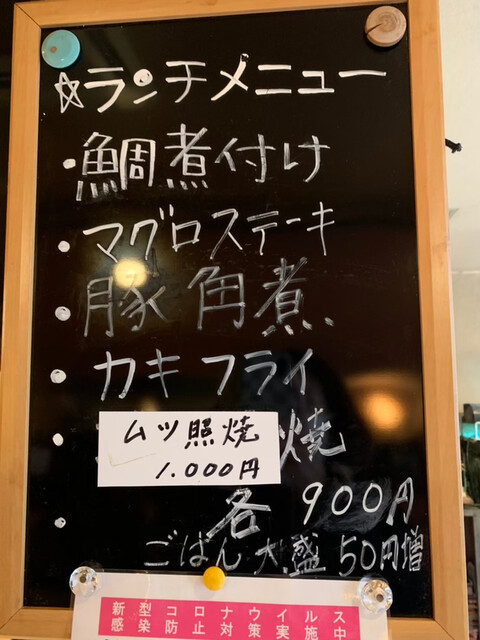 ☆ランチメニュー
・鯛煮付け
・マグロステーキ
・豚角煮
・カキフライ
・ 焼
ムツ照焼
1.000円
・各 900円
ごはん大盛50円増
新型コロナウイルス
感染防止対策実施中